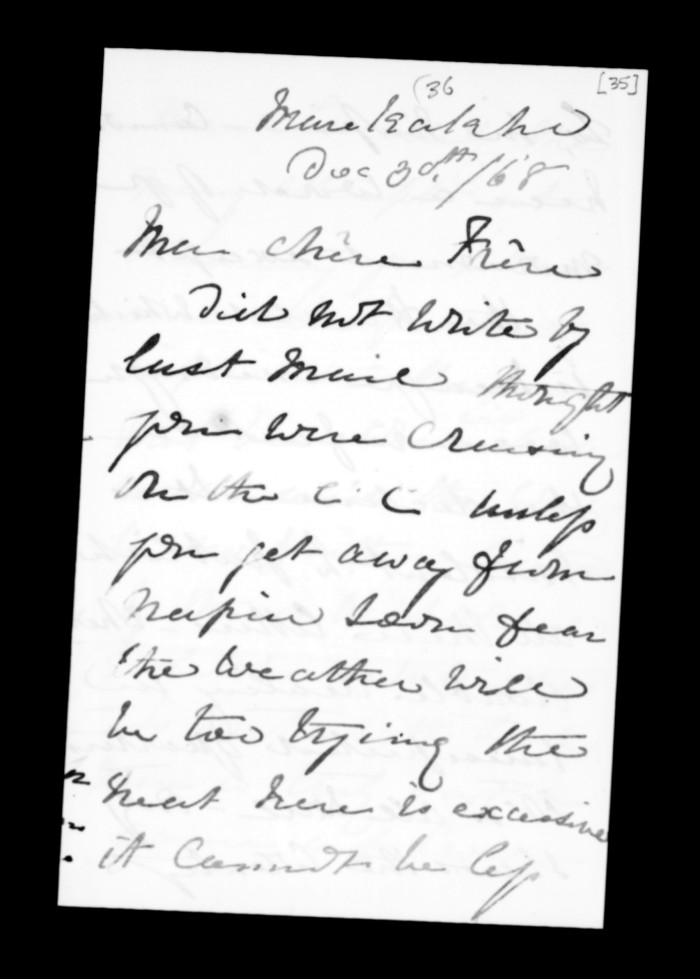 (36 [35]
Maraekakaho
Dec 30th/68
Mon chère Frère
Did not write by
last Mail thought
you were Cruising
on the E. C. Unless
you get away from
Napier soon fear
the Weather will
be too trying the
heat here is excessive
it Cannot be less